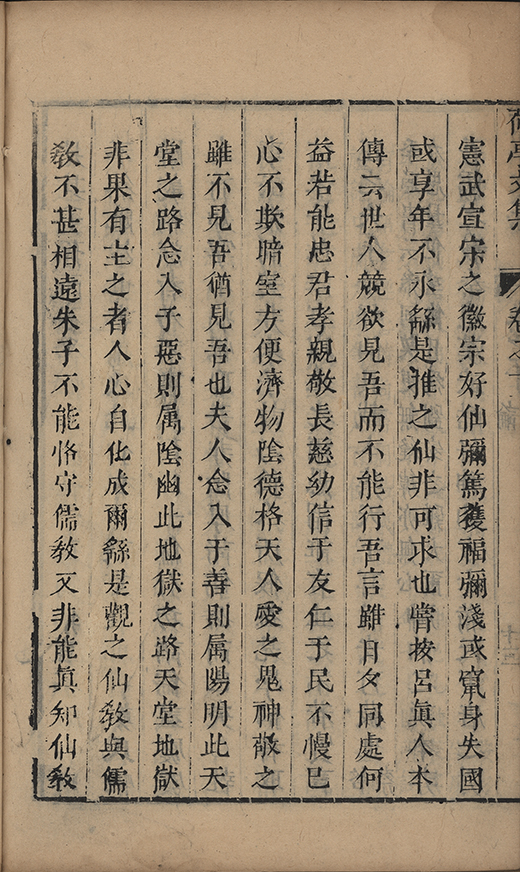 憲武宣宋之徽宗好仙彌篤獲福彌淺或竄身失國
或享年不永繇是推之仙非可求也嘗按呂眞人本
傳云世人競欲見吾而不能行吾言雖日夕同處何
益若能忠君孝親敬長慈幼信于友仁于民不慢已
心不欺暗室方便濟物陰德格天人愛之鬼神敬之
雖不見吾猶見吾也夫人念入于善則属陽明此天
堂之路念入于惡則属陰幽此地獄之路天堂地獄
非果有主之者人心自化成爾繇是觀之仙教與儒
教不甚相遠朱子不能恪守儒教又非能眞知仙教